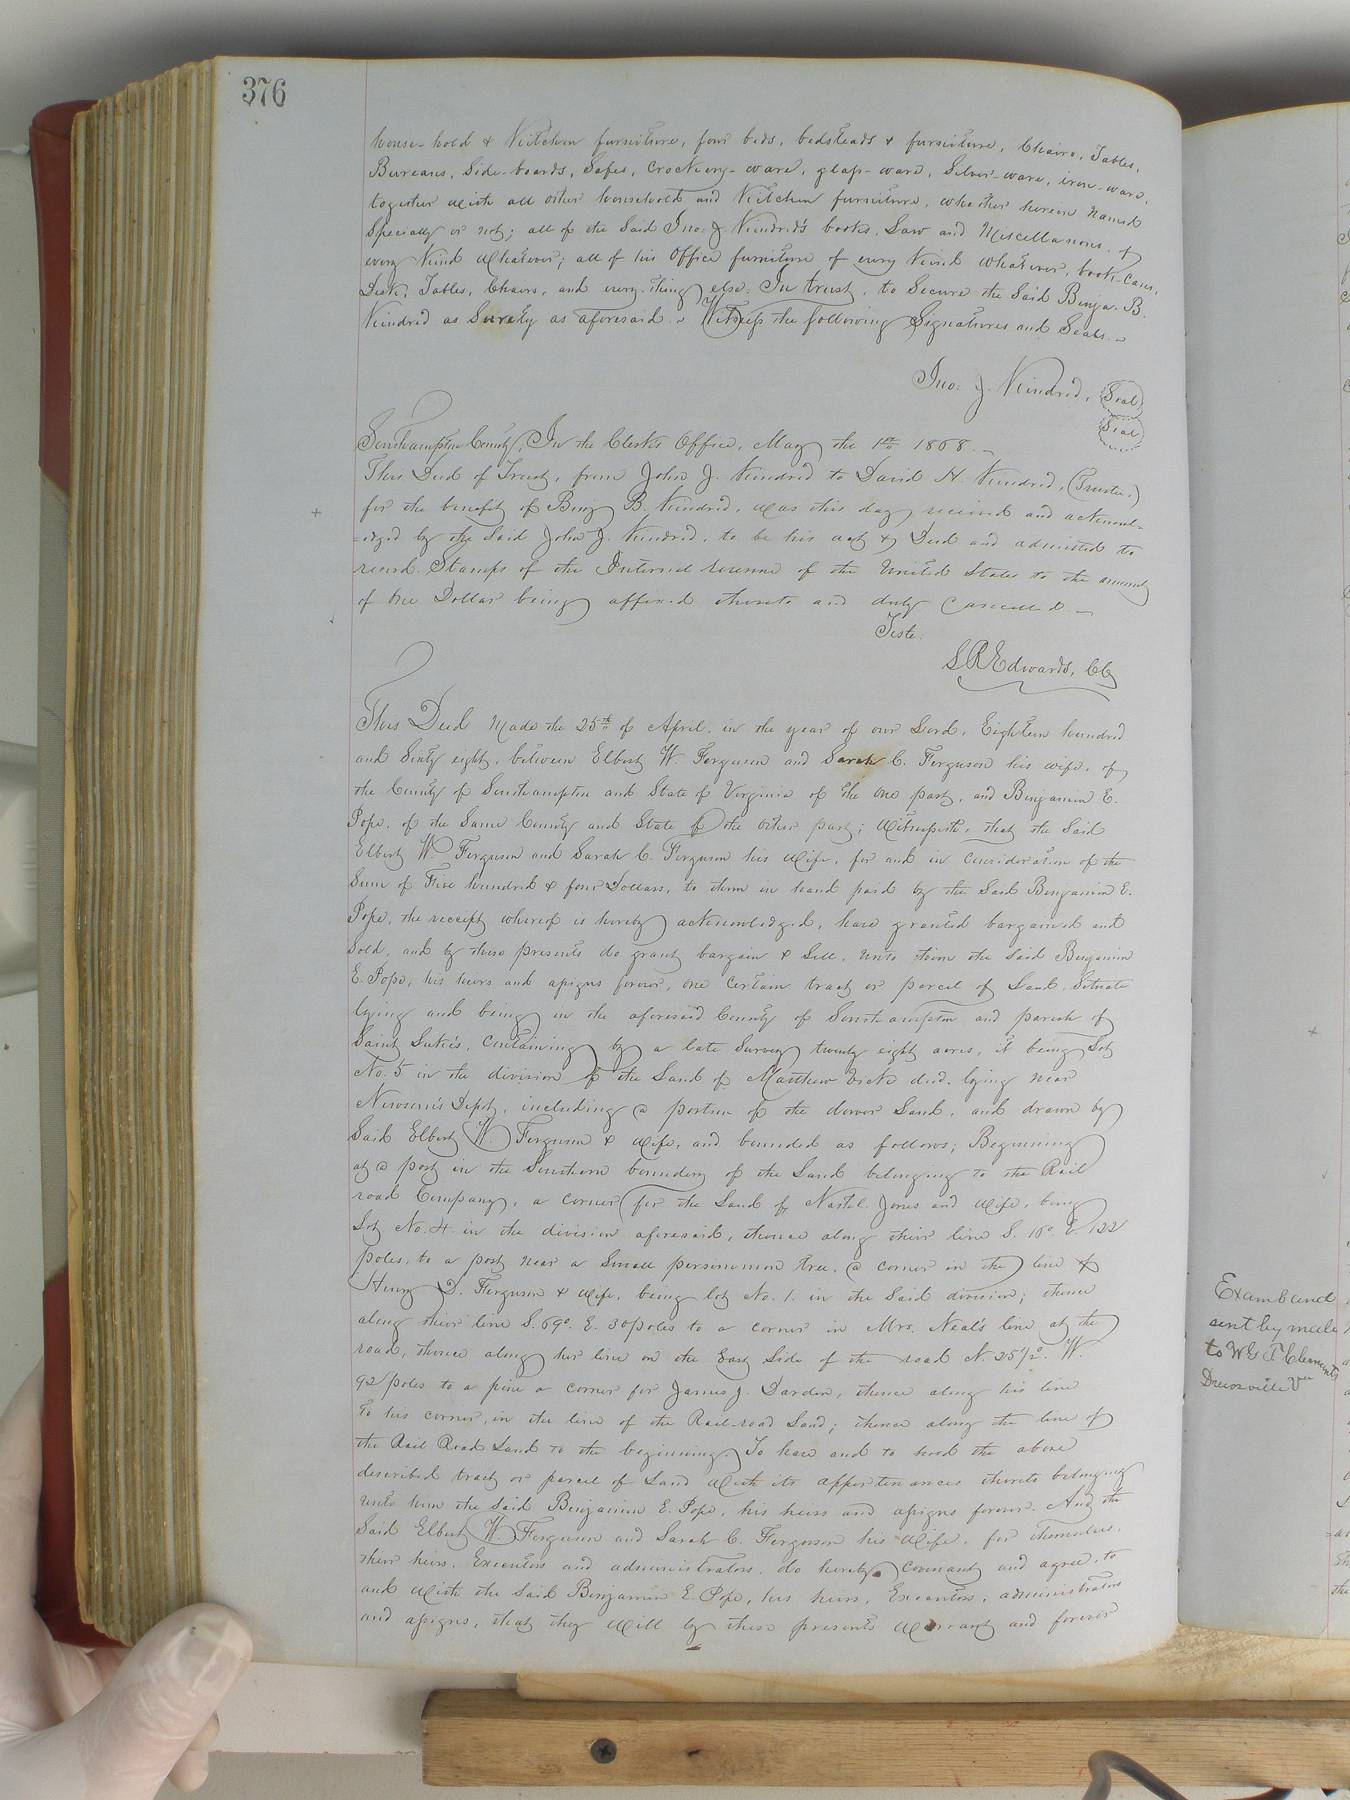 376
house-hold & Kitchen furniture, four beds, bedsteads & furniture, Chairs, Tables,
Bureaus, Side-boards, Safes, Crockery-ware, glass-ware, Silver-ware, iron-ware,
together with all other household and Kitchen furniture, whether herein named
Specially or not; all of the Said Jno: J. Kindred's books, Law and Miscellaneous, of
every Kind Whatever; all of his Office furniture of every Kind whatever, book-Case,
Desk, Tables, Chairs, and every-thing else. In trust, to Secure the Said Benja. B.
Kindred as Surety as aforesaid. Witness the following Signatures and Seals.
Jno: J. Kindred, Seal
Seal
Southampton County, In the Clerk's Office, May the 1st 1868.
This Deed of Trust, from John J. Kindred to David H. Kindred, (Trustee,)
for the benefit of Benj B. Kindred, was this day received and acknowl-
=edged by the Said John J. Kindred, to be his act & Deed and admitted to
record. Stamps of the Internal revenue of the United States to the amount
of One Dollar being affixed thereto and duly Cancelled.
Teste:
L R Edwards, CC
This Deed Made the 25th of April, in the year of our Lord, Eighteen hundred
and Sixty eight, between Elbert W. Ferguson and Sarah C. Ferguson his wife, of
the County of Southampton and State of Virginia of the one part, and Benjamin E.
Pope, of the Same County and State of the other part; Witnesseth, that the Said
Elbert W. Ferguson and Sarah C. Ferguson his Wife, for and in Consideration of the
Sum of Five hundred & four Dollars, to them in hand paid by the Said Benjamin E.
Pope, the receipt whereof is hereby acknowledged, have granted bargained and
Sold, and by these presents do grant bargain & Sell, unto him the said Benjamin
E. Pope, his heirs and assigns forever, one Certain tract or parcel of Land, Situate
lying and being in the aforesaid County of Southampton and parish of
Saint Luke's, Containing by a late Survey twenty eight acres, it being Lot
No. 5 in the division of the Land of Matthew Vick decd. lying near
Newsom's Depot, including a portion of the dower Land, and drawn by
Said Elbert W. Ferguson & Wife, and bounded as follows; Beginning
at a post in the Southern boundary of the Land belonging to the Rail
road Company, a corner for the Land of Nathl. Jones and Wife, being
Lot No. 4. in the division aforesaid, thence along their line S. 18°. E 122
poles, to a post near a Small persimmon tree, a corner in the line of
Henry D. Ferguson & Wife, being lot No. 1. in the Said division; thence
along their line S. 69°. E. 30 poles to a corner in Mrs. Neal's line at the
road, thence along her line on the East Side of the road N. 25 1/2°. W.
92 poles to a pine a corner for James J. Darden, thence along his line
to his corner, in the line of the Rail-road Land; thence along the line of
the Rail Road Land to the beginning. To have and to hold the above
described tract or parcel of Land With its appurtenances thereto belonging
unto him the Said Benjamin E. Pope, his heirs and assigns forever. And the
Said Elbert W. Ferguson and Sarah C. Ferguson his Wife, for themselves,
their heirs, Executors and administrators, do hereby covenant and agree, to
and With the Said Benjamin E. Pope, his heirs, Executors, administrators
and assigns, that they Will by these presents Warrant and forever
Examd and
sent by mail
to W G T Clements
Drewsville Va